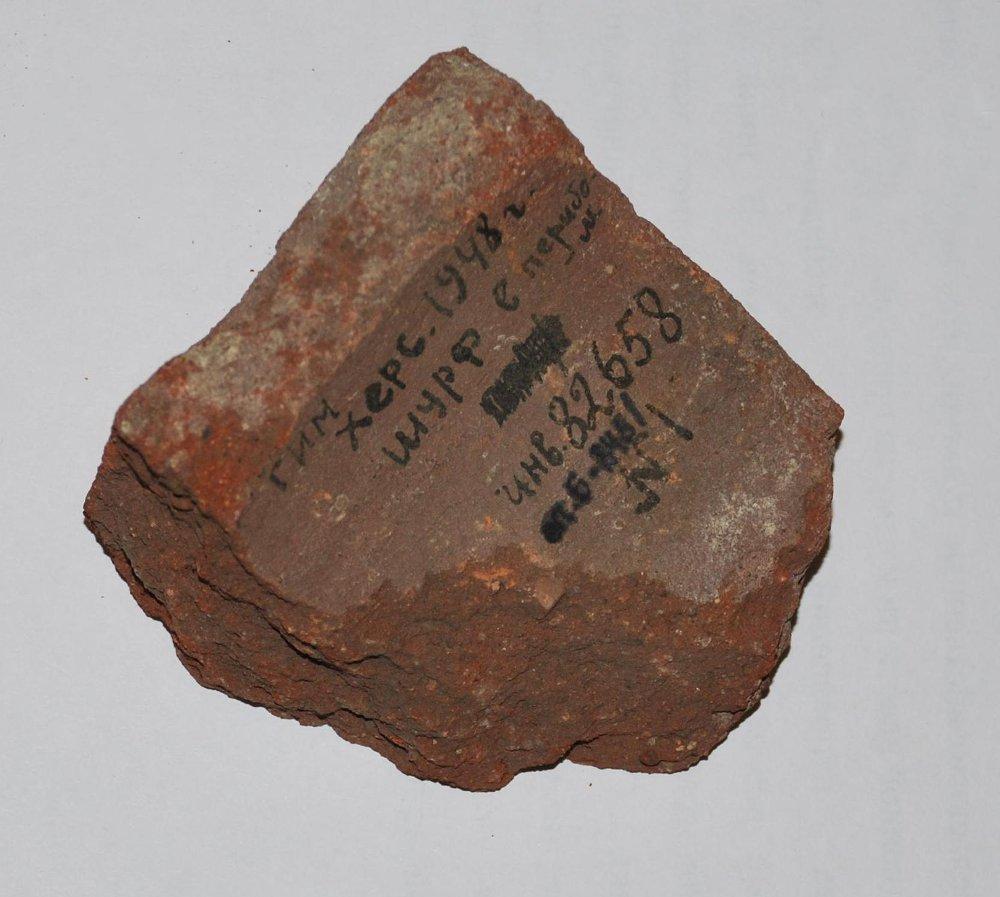 ГИМ
Херс. 1948 г.
шурф с периб
м
инв. 82658
N 1